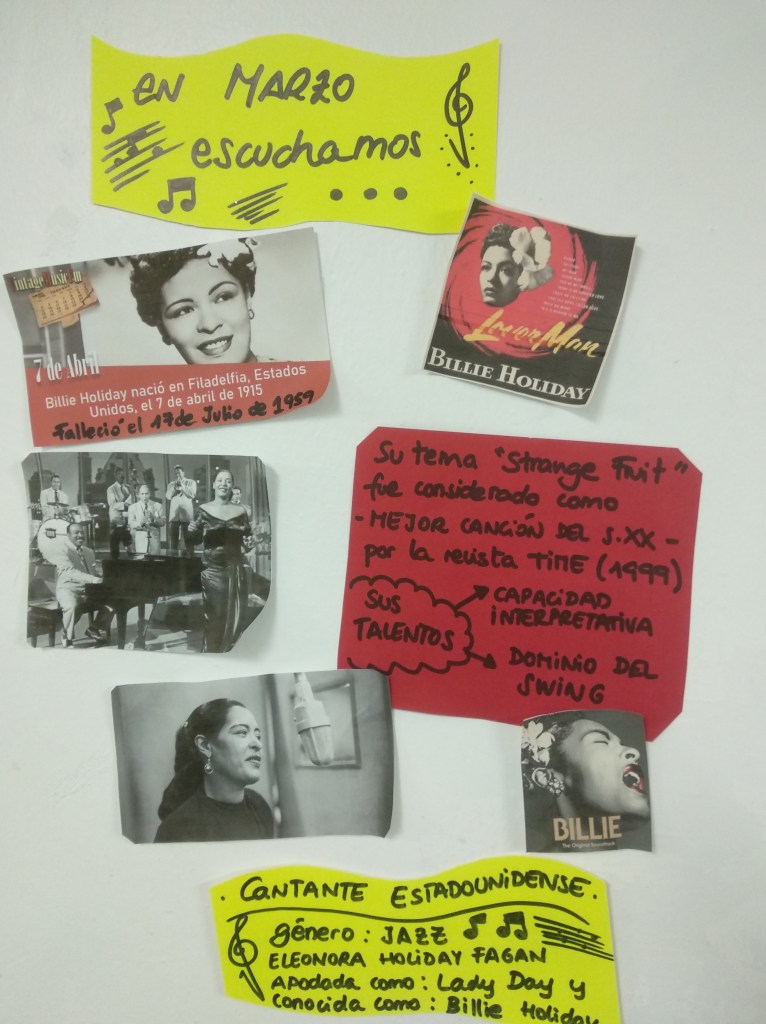 en MARZO
escuchamos
...
VintageMusicFm
7 de Abril
Billie Holiday nació en Filadelfia, Estados
Unidos, el 7 de abril de 1915
Falleció el 17 de Julio de 1959
Lover Man
BILLIE HOLIDAY
Su tema "Strange Fruit"
fue considerado como
- MEJOR CANCIÓN DEL S.XX -
por la revista TIME (1999)
SUS
TALENTOS
CAPACIDAD
INTERPRETATIVA
DOMINIO DEL
SWING
BILLIE
The Original Soundtrack
· CANTANTE ESTADOUNIDENSE.
género: JAZZ
ELEONORA HOLIDAY FAGAN
Apodada como: Lady Day y
conocida como: Billie Holiday